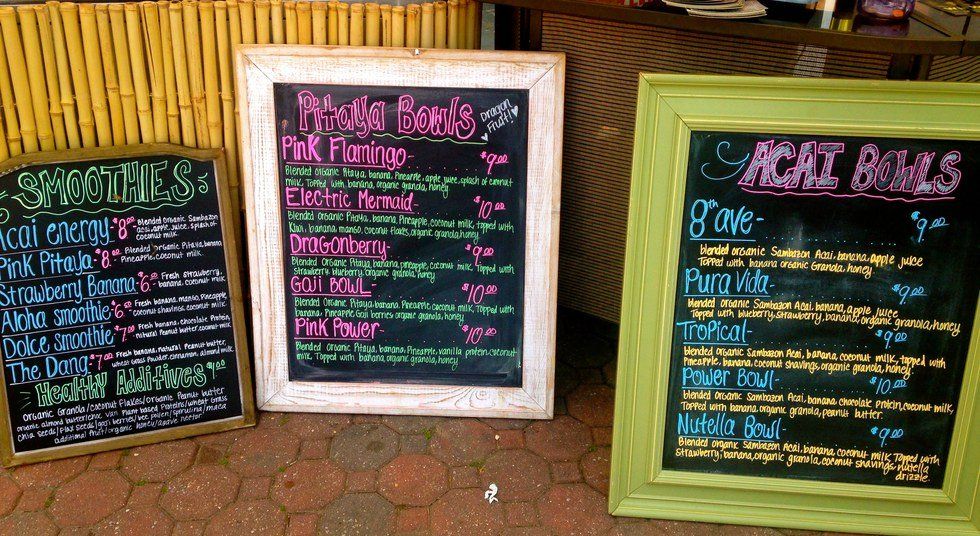 SMOOTHIES
Acai energy- $8.00 Blended Organic Sambazon
acai, apple juice, splash of
coconut milk.
Pink Pitaya- $8.00 Blended Organic Pitaya, banana
Pineapple, coconut milk.
Strawberry Banana- $6.00 Fresh strawberry,
banana, coconut milk.
Aloha smoothie- $6.00 Fresh banana, mango, Pineapple,
coconut shavings, coconut milk.
Dolce smoothie- $7.00 Fresh banana, chocolate Protein,
natural Peanut butter, coconut milk.
The Dang- $7.00 Fresh banana, natural Peanut butter,
wheat Grass Powder, cinnamon, almond milk.
Healthy Additives $1.00
organic Granola/coconut flakes/organic Peanut butter
organic almond butter/rice
Plant based Proteins/wheat Grass
Chia Seeds/Flax Seeds/goji berries/bee pollen/spirulina/maca
additional fruit/organic honey/agave nectar
Pitaya Bowls Dragon
Fruit!
Pink Flamingo- $9.00
Blended organic Pitaya, banana, Pineapple, apple juice, splash of coconut
milk, Topped with banana, organic granola, honey
Electric Mermaid- $10.00
Blended organic Pitaya, banana, Pineapple, coconut milk, topped with
Kiwi, banana, coconut flakes, organic granola, honey.
Dragonberry- $9.00
Blended organic Pitaya, banana, pineapple, coconut milk, Topped with
Strawberry, blueberry, organic granola, honey.
Goji Bowl- $10.00
Blended Organic Pitaya, banana, Pineapple, coconut milk, Topped with
banana, Pineapple, Goji berries, organic granola, honey
Pink Power- $10.00
Blended organic Pitaya, banana, Pineapple, vanilla protein, coconut
milk, Topped with banana, organic granola, honey.
ACAI BOWLS
8th ave- $9.00
blended organic Sambazon Acai, banana, apple juice
Topped with banana organic Granola, honey.
Pura Vida- $9.00
blended organic Sambazon Acai, banana, apple juice
Topped w/ blueberry, strawberry, banana, organic granola, honey
Tropical- $9.00
blended organic Sambazon Acai, banana, coconut milk, topped with
Pineapple, banana, coconut shavings, organic granola, honey.
Power Bowl- $10.00
blended organic Sambazon Acai, banana, chocolate protein, coconut milk,
Topped with banana, organic granola, peanut butter.
Nutella Bowl- $9.00
Blended organic Sambazon Acai, banana, coconut milk Topped with
strawberry, banana, organic granola, coconut shavings, nutella
drizzle.